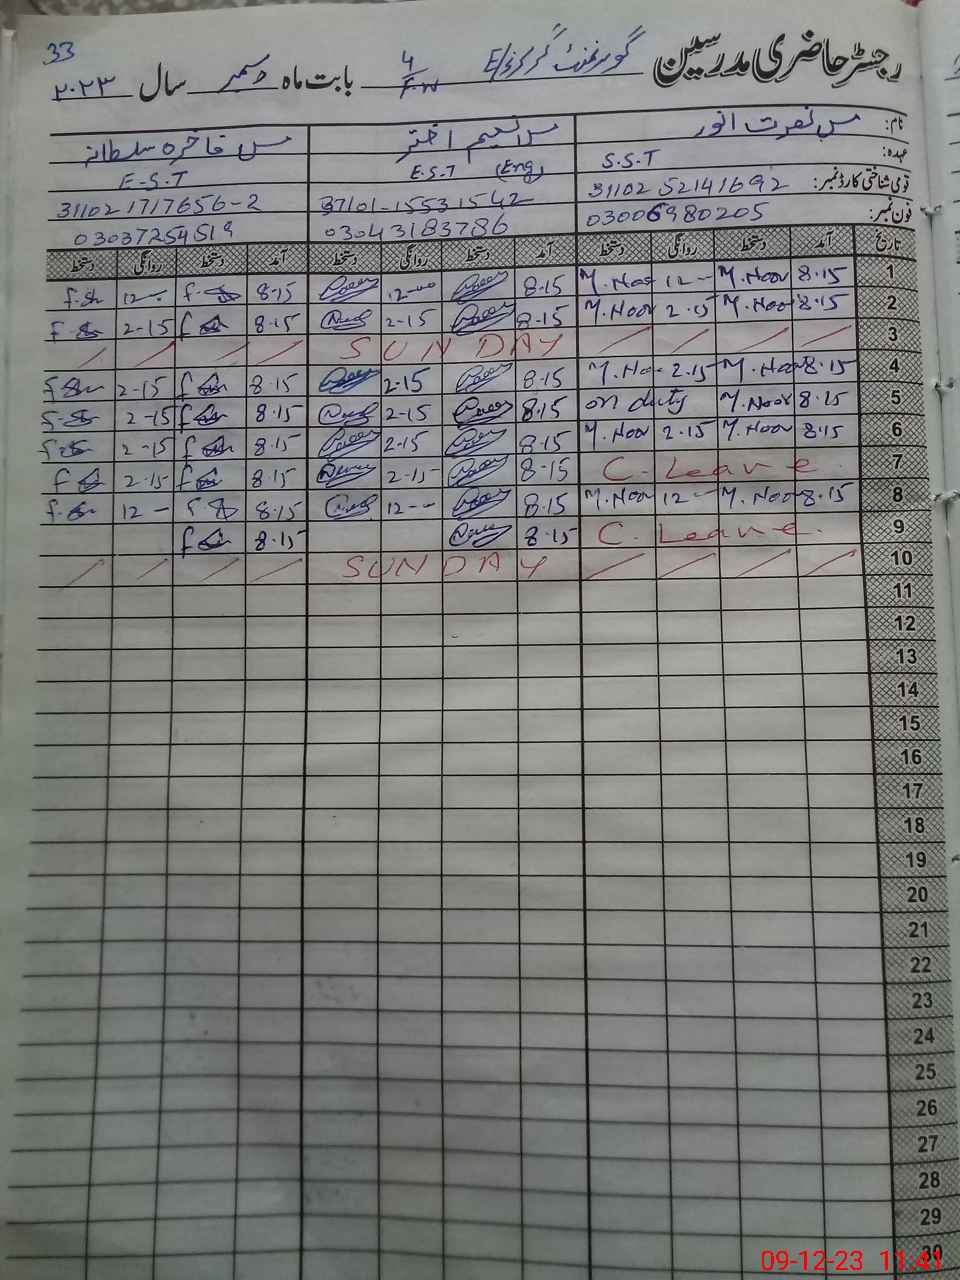 33
رجسٹر حاضری مدرسین گورنمنٹ گرلز E/S 4/F.W بابت ماہ دسمبر سال ۲۰۲۳
نام: مس نصرت انور مس نسیم اختر مس فاخرہ سلطانہ
عہدہ: S.S.T E.S.T (Eng) E.S.T
قومی شناختی کارڈ نمبر: 31102 52141692 37101-15531542 311021717656-2
فون نمبر: 03006980205 03043183786 03037254519
تاریخ آمد دستخط روانگی دستخط آمد دستخط روانگی دستخط آمد دستخط روانگی دستخط
1 8.15 M.Noor 12 — M.Noor 8.15 12 — 8.15 12 —
2 8.15 M.Noor 2.15 M.Noor 8.15 2-15 8.15 2-15
3 SUNDAY
4 8.15 M.Noor 2.15 M.Noor 8.15 2.15 8.15 2-15
5 8.15 M.Noor on duty 8.15 2-15 8.15 2-15
6 8.15 M.Noor 2.15 M.Noor 8.15 2.15 8.15 2-15
7 C. Leave. 8-15 2-15 8.15 2.15
8 8.15 M.Noor 12 — M.Noor 8.15 12 — 8.15 12 —
9 C. Leave. 8.15 8.15
10 SUNDAY
11
12
13
14
15
16
17
18
19
20
21
22
23
24
25
26
27
28
29
30
09-12-23 11:41